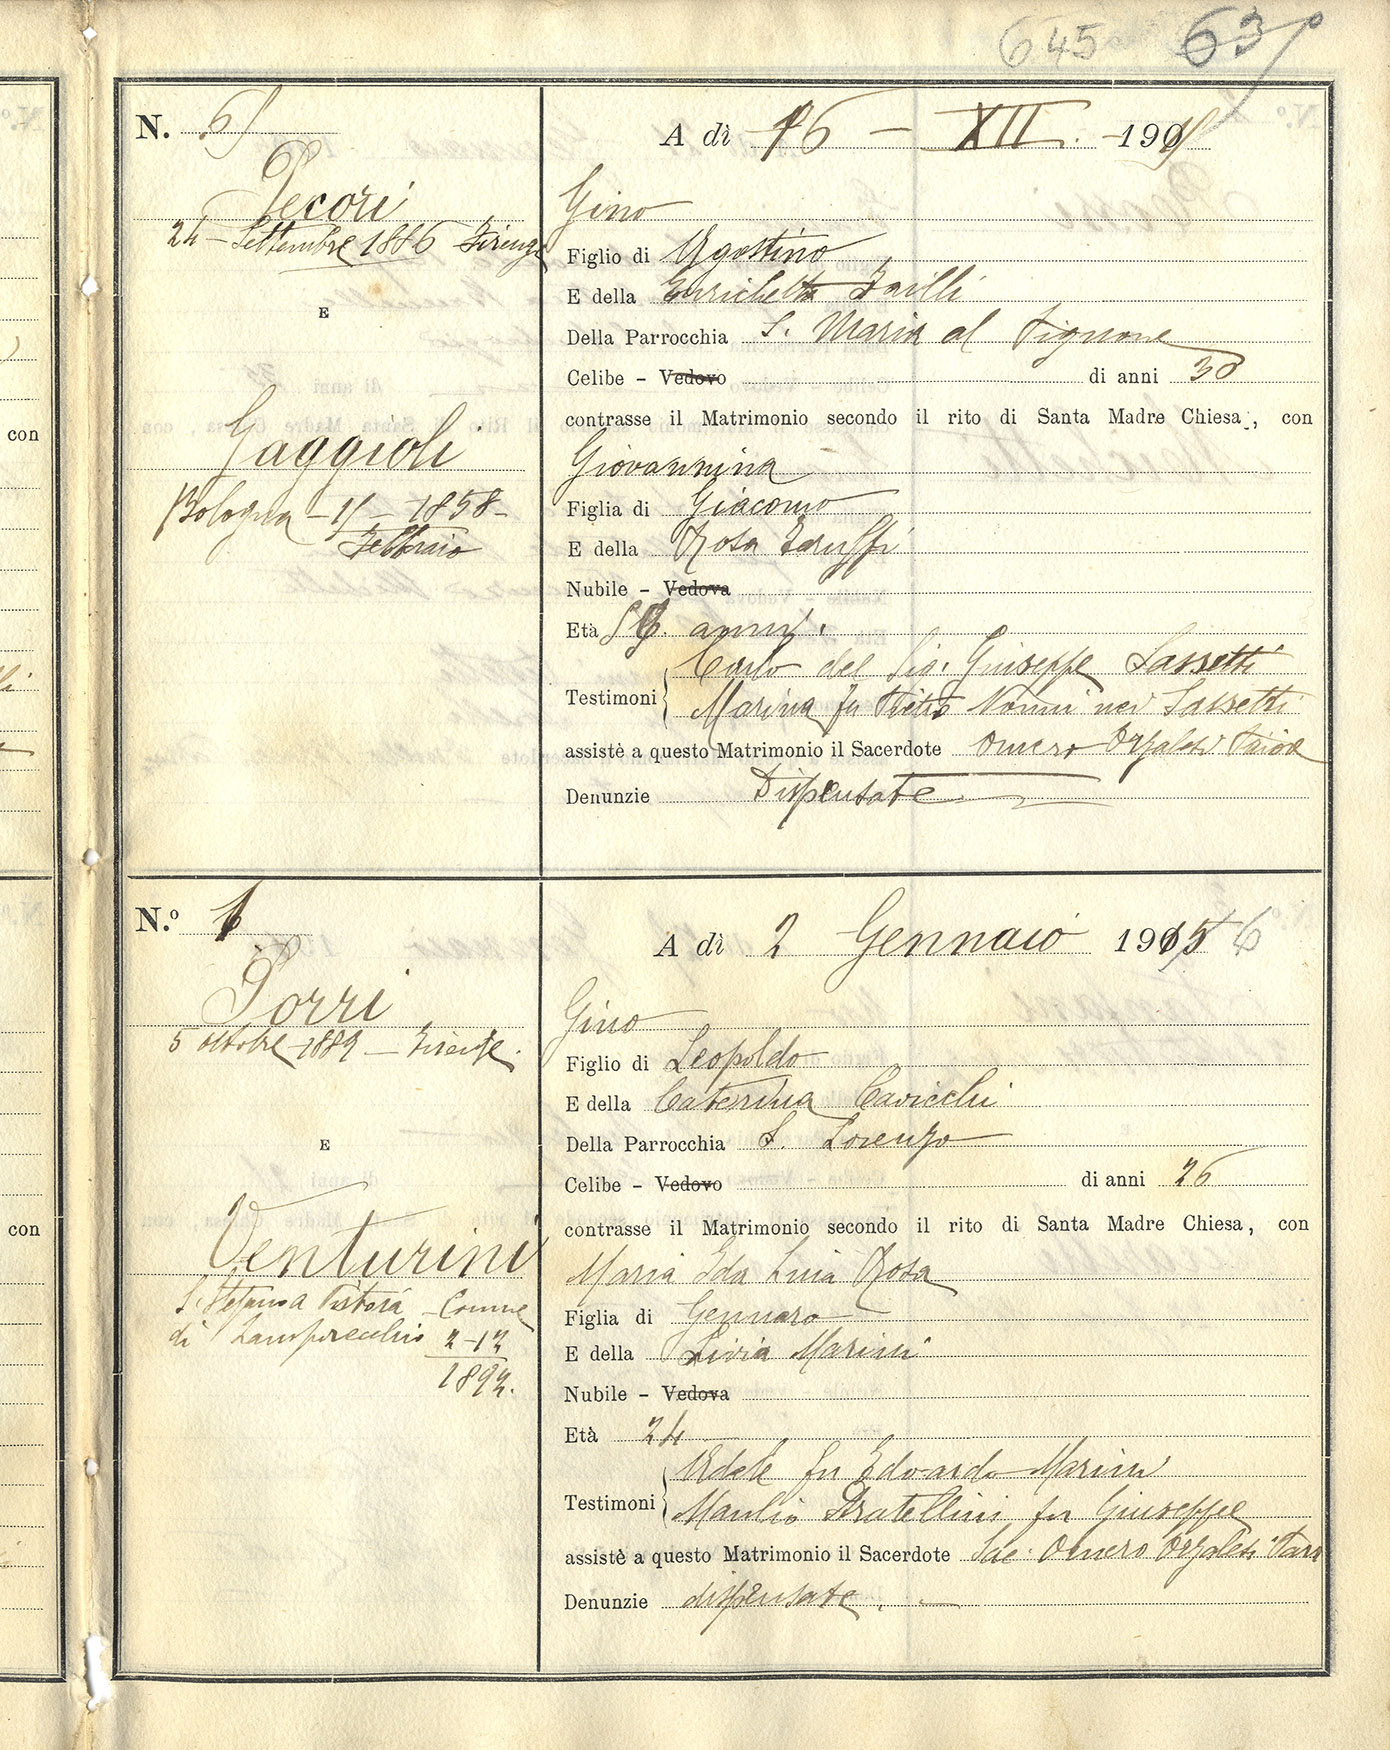 645 63
N. 61
A dì 16 - XII. - 191
Pecori
24 - Settembre 1886 Firenze
E
Gaggioli
Bologna - 11 - 1858 -
Febbraio
Gino
Figlio di Agostino
E della Enrichetta
Della Parrocchia S. Maria al Pignone
Celibe - Vedovo di anni 30
contrasse il Matrimonio secondo il rito di Santa Madre Chiesa, con
Giovannina
Figlia di Giacomo
E della Rosa
Nubile - Vedova
Età anni.
Testimoni Carlo del Sig. Giuseppe Sassetti
Marina fu Pietro Nonni nei Sassetti
assistè a questo Matrimonio il Sacerdote Omero Orzalesi Prior
Denunzie Dispensate
con
N.º 1
A dì 2 Gennaio 1915 6
Porri
5 ottobre 1889 - Firenze.
E
Venturini
S. Stefano a Pistoia - Comune
di Lamporecchio 2-12
1892.
Gino
Figlio di Leopoldo
E della Caterina Cavicchi
Della Parrocchia S. Lorenzo
Celibe - Vedovo di anni 26
contrasse il Matrimonio secondo il rito di Santa Madre Chiesa, con
Maria Ida Luia Rosa
Figlia di Gennaro
E della Livia Marini
Nubile - Vedova
Età 24
Testimoni Adele fu Edoardo Marini
Manlio Fratellini fu Giuseppe
assistè a questo Matrimonio il Sacerdote Sac. Omero Orzalesi
Denunzie dispensate. -
con